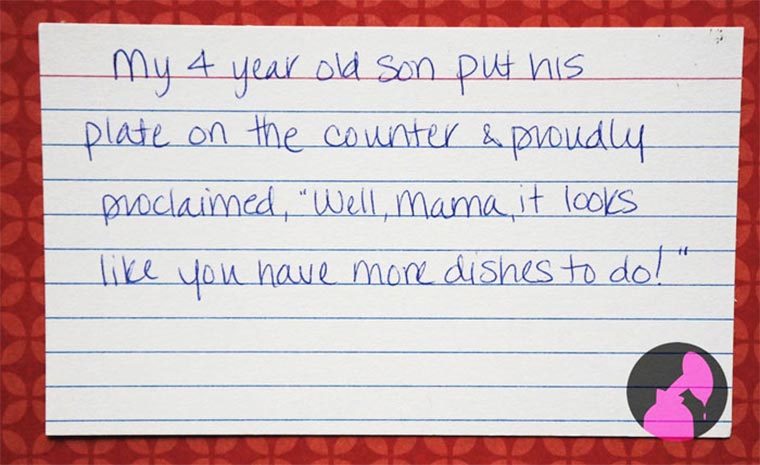 My 4 year old son put his
plate on the counter & proudly
proclaimed, "Well, Mama, it looks
like you have more dishes to do!"